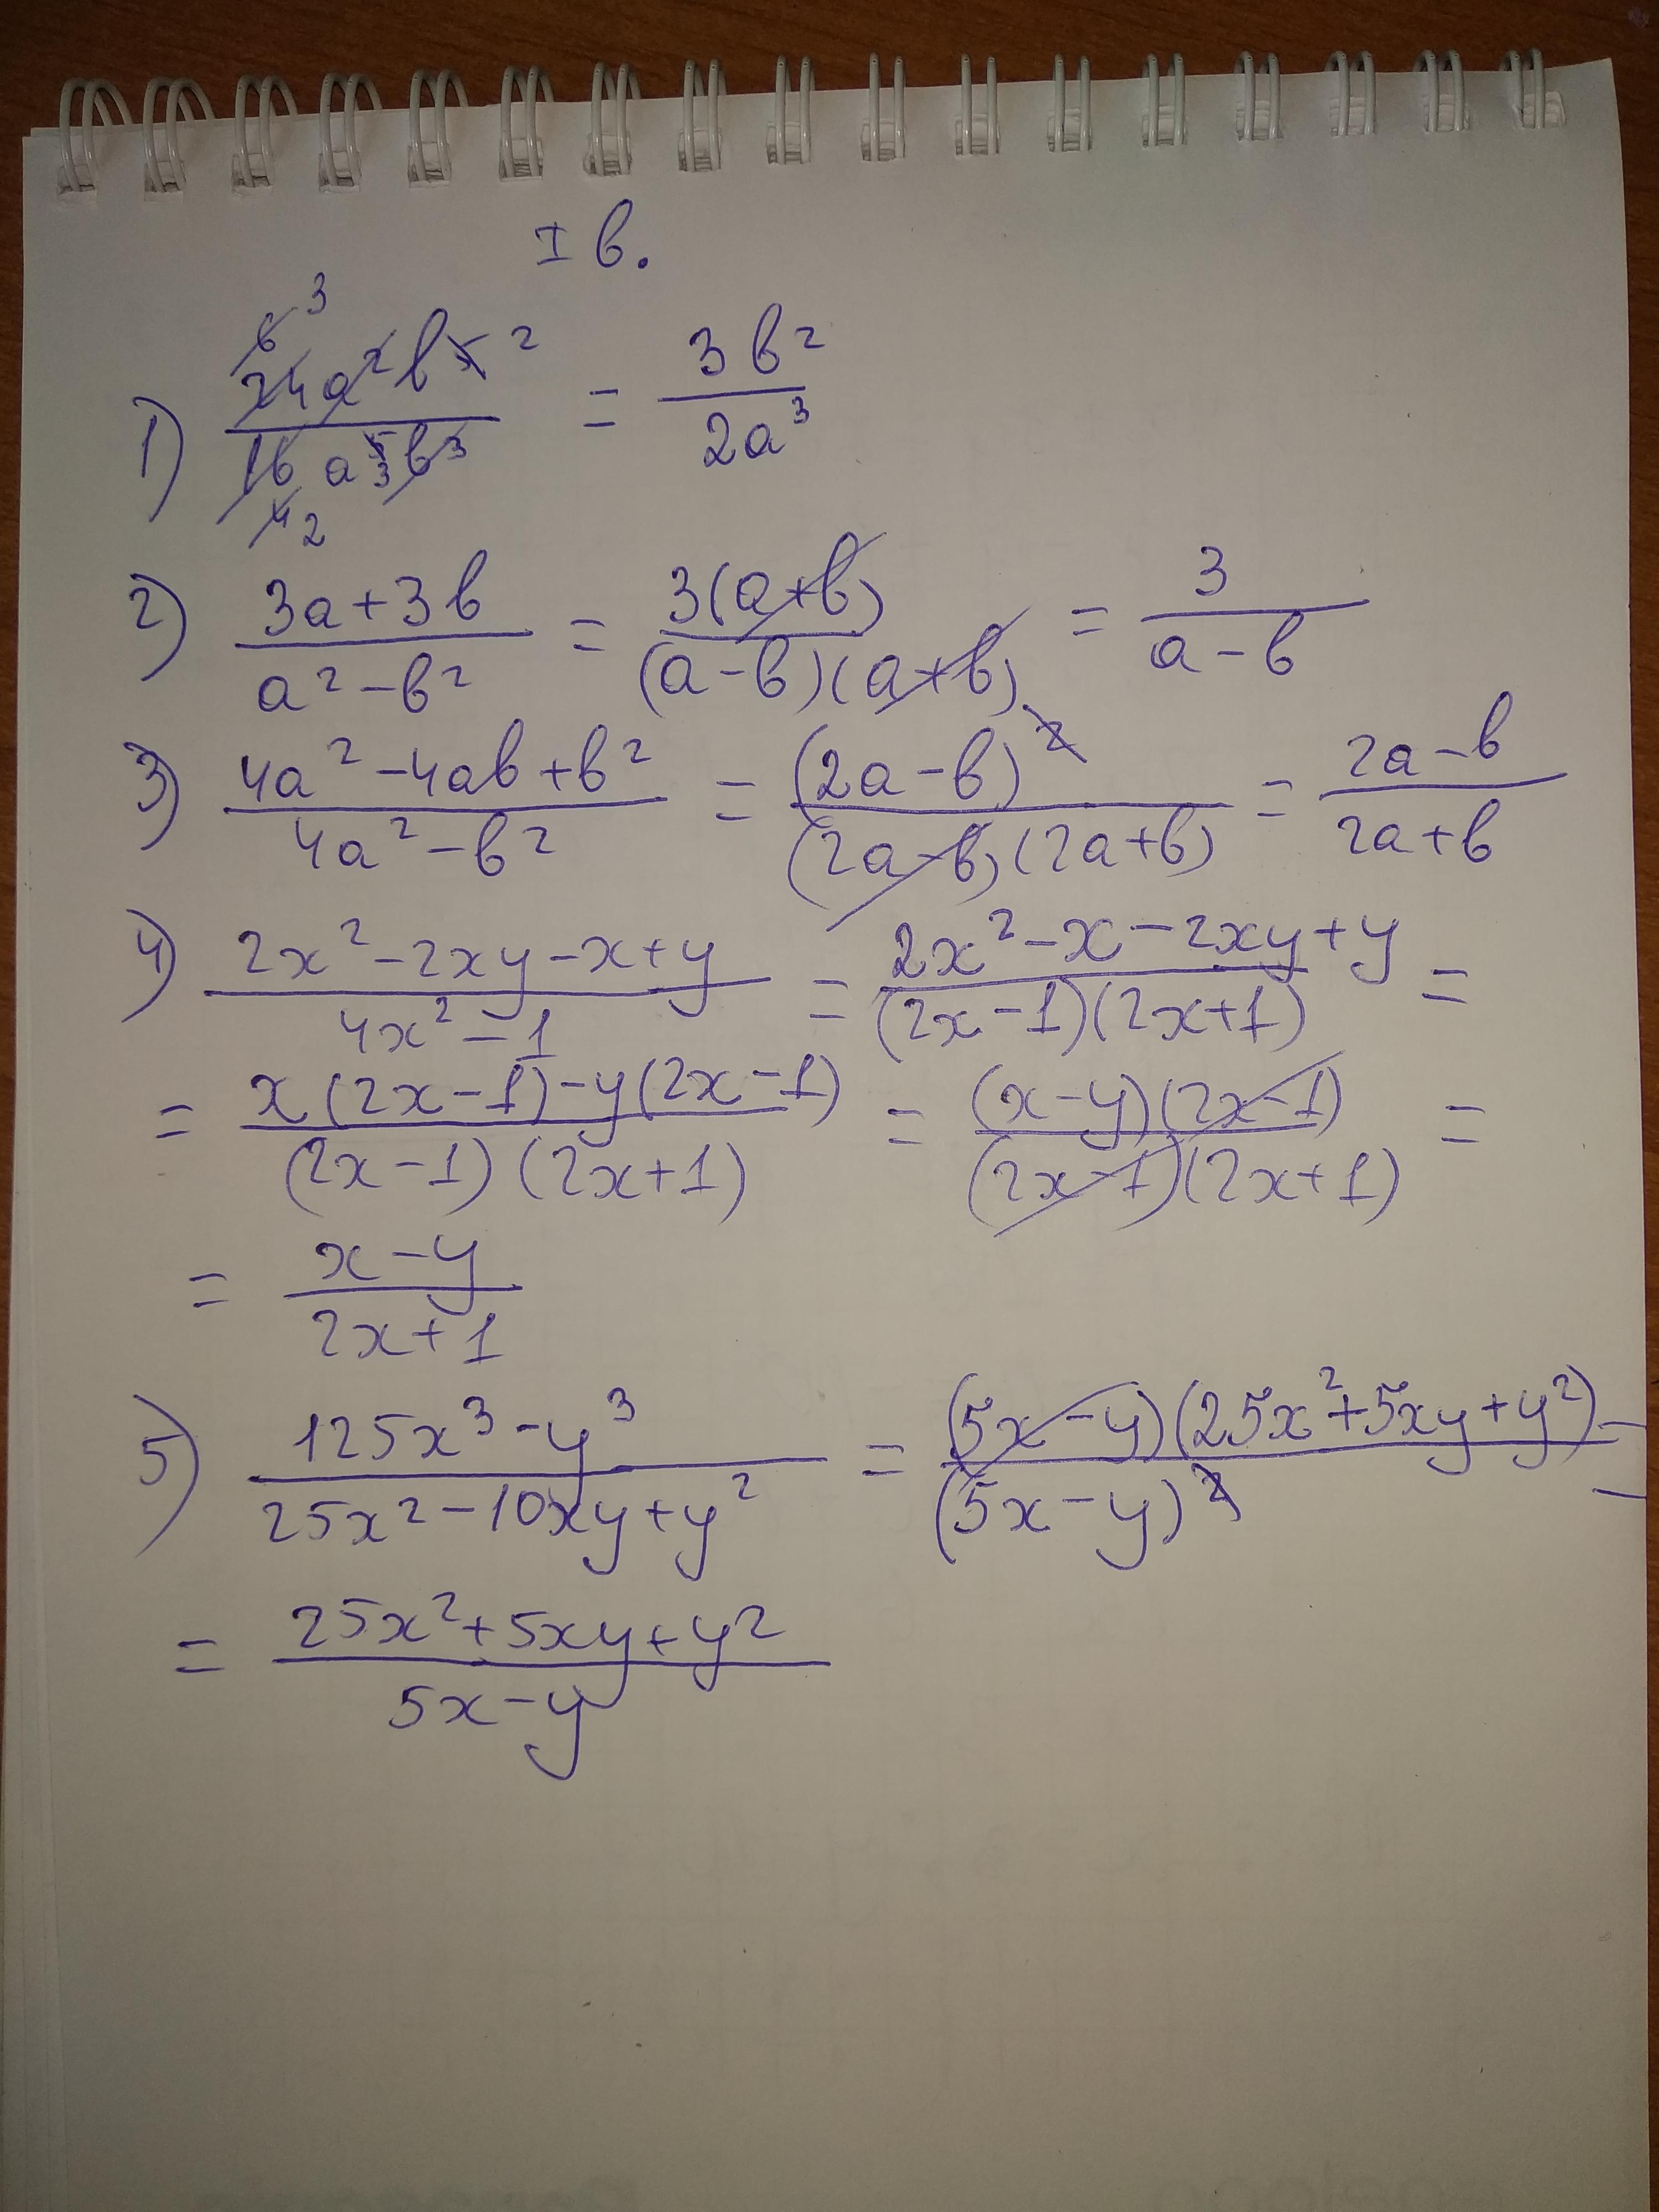 I в.
1) 24a²b⁵ / 16a⁵b³ = 3b² / 2a³
2) 3a+3b / a²-b² = 3(a+b) / (a-b)(a+b) = 3 / a-b
3) 4a²-4ab+b² / 4a²-b² = (2a-b)² / (2a-b)(2a+b) = 2a-b / 2a+b
4) 2x²-2xy-x+y / 4x²-1 = 2x²-x-2xy+y / (2x-1)(2x+1) =
= x(2x-1)-y(2x-1) / (2x-1)(2x+1) = (x-y)(2x-1) / (2x-1)(2x+1) =
= x-y / 2x+1
5) 125x³-y³ / 25x²-10xy+y² = (5x-y)(25x²+5xy+y²) / (5x-y)² =
= 25x²+5xy+y² / 5x-y